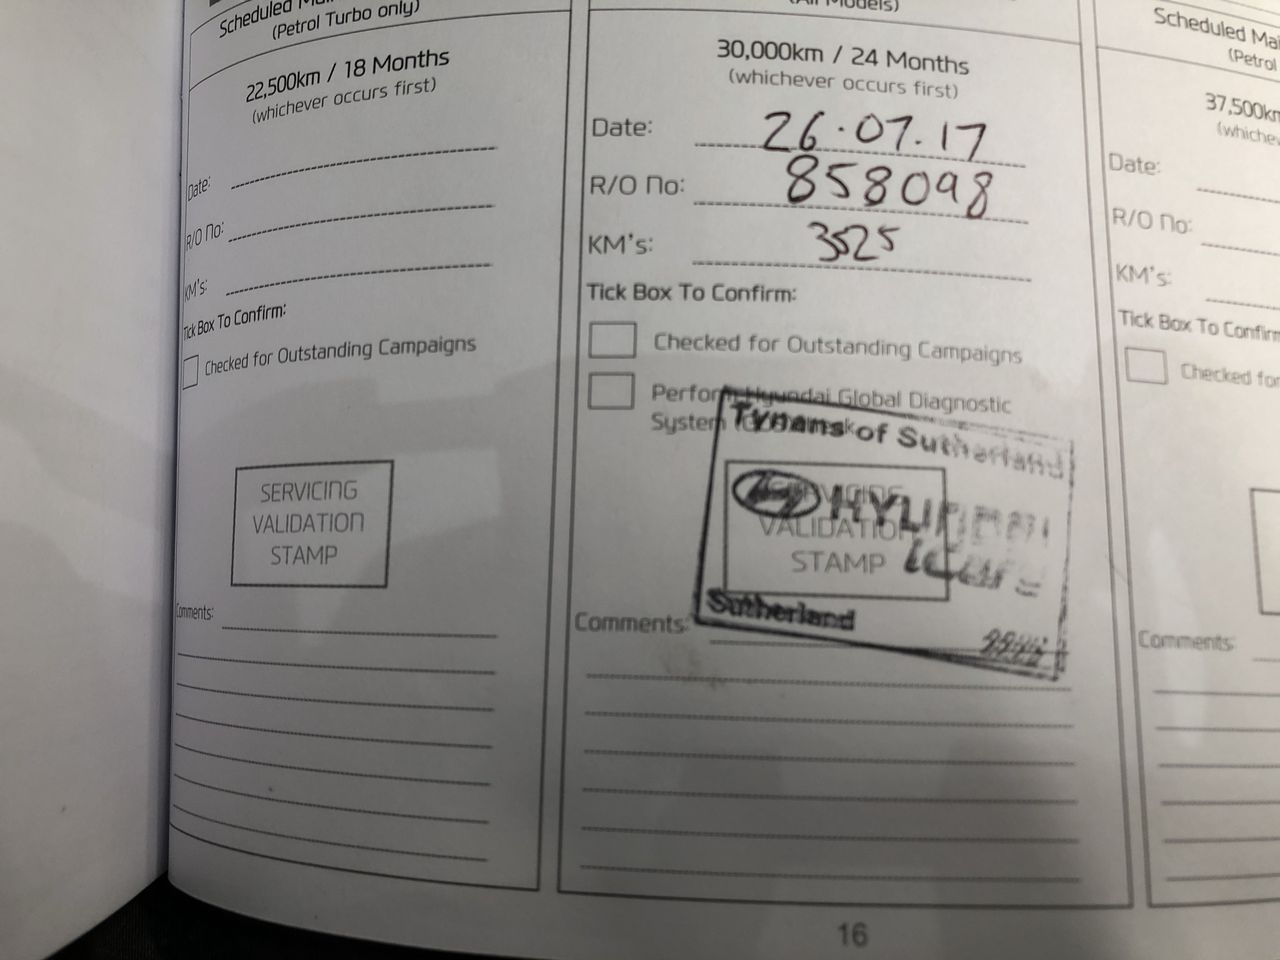 Scheduled
(Petrol Turbo only)
22,500km / 18 Months
(whichever occurs first)
Date:
R/O No:
KM's:
Tick Box To Confirm:
Checked for Outstanding Campaigns
SERVICING
VALIDATION
STAMP
Comments:
(All Models)
30,000km / 24 Months
(whichever occurs first)
Date: 26.07.17
R/O No: 858098
KM's: 3525
Tick Box To Confirm:
Checked for Outstanding Campaigns
Perform Hyundai Global Diagnostic
System
Tynans of Sutherland
HYUNDAI
iCare
SERVICING
VALIDATION
STAMP
Sutherland
Comments:
Scheduled Mai
(Petrol
37,500km
(whichev
Date:
R/O No:
KM's:
Tick Box To Confirm
Checked for
Comments:
16